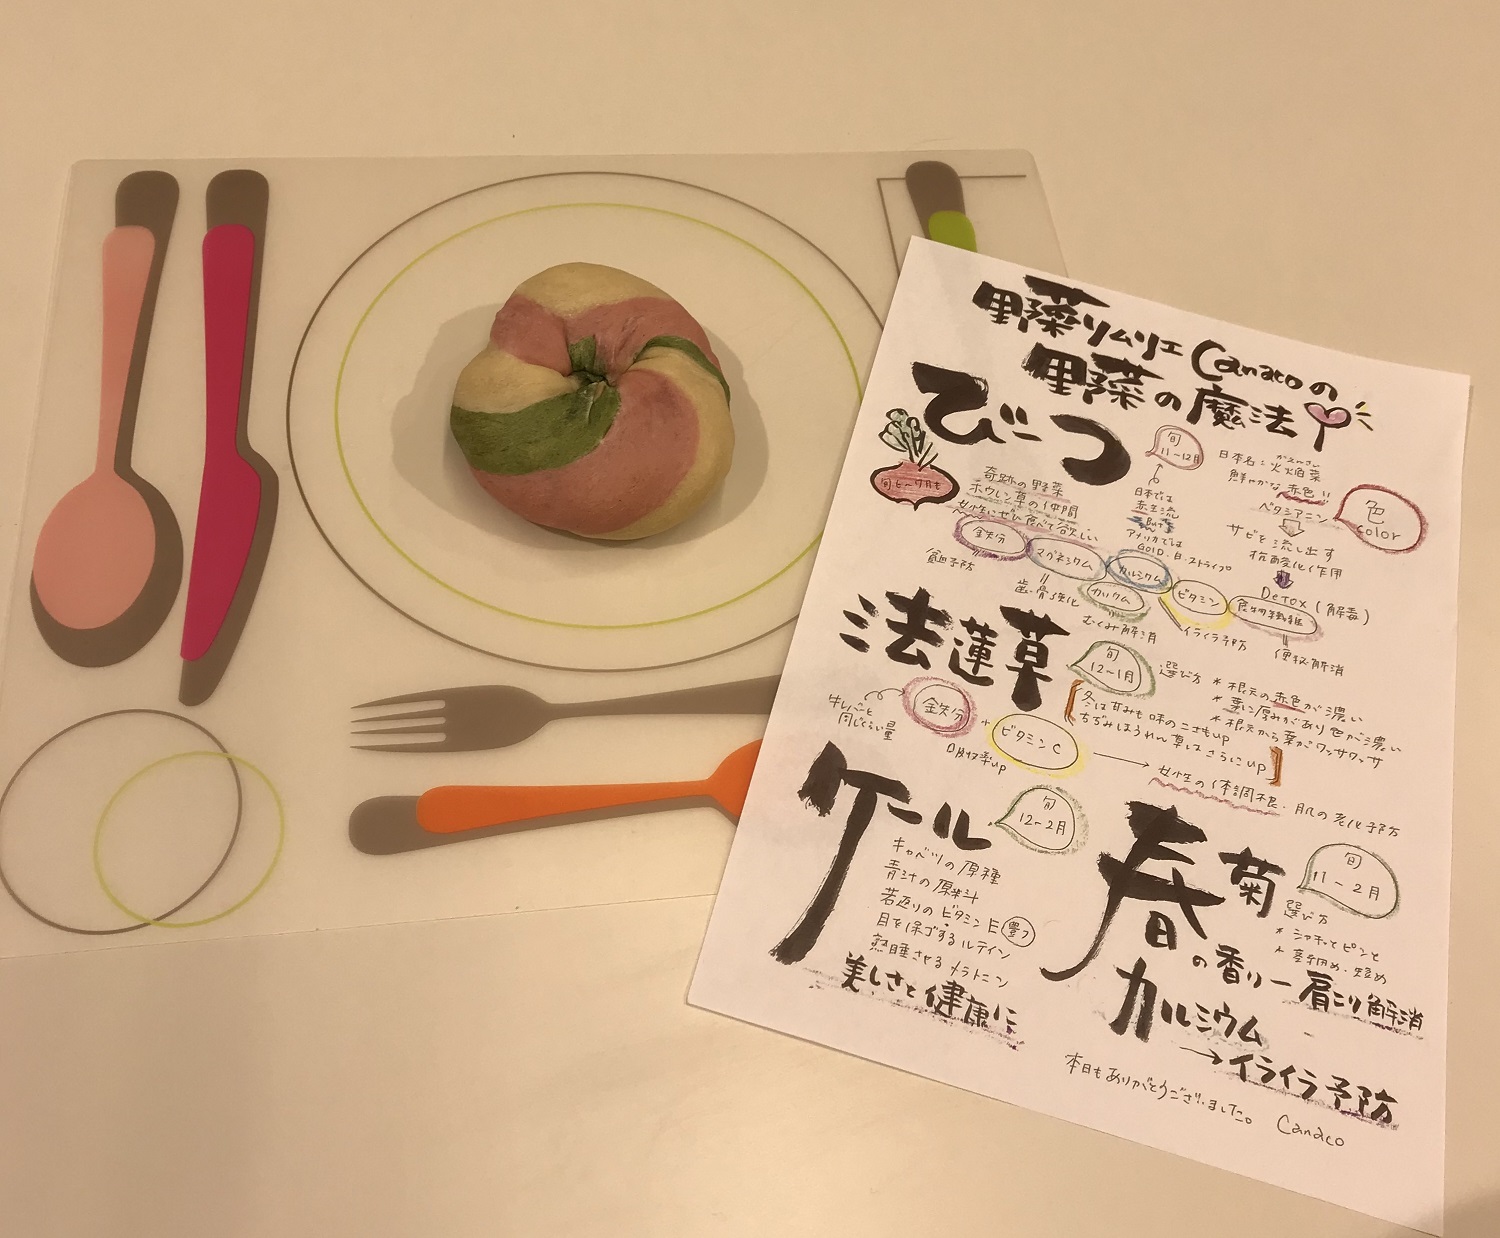 野菜ソムリエCanacoの
野菜の魔法
びーつ
旬
11-12月
旬 6~7月も
奇跡の野菜
ホウレン草の仲間
女性にぜひ食べて欲しい
日本では
赤主流
アメリカでは
GOLD.白.ストライプ
日本名:火焔菜
かえんさい
鮮やかな赤色!!
ベタシアニン
色
color
サビを流し出す
抗酸化作用
Detox(解毒)
鉄分
マグネシウム
カルシウム
カリウム
ビタミン
食物繊維
貧血予防
歯・骨強化
むくみ解消
イライラ予防
便秘解消
法蓮草
旬
12-1月
選び方
*根元の赤色が濃い
*葉に厚みがあり色が濃い
*根元から葉がワッサワッサ
牛レバーと
同じくらい量
鉄分
+
ビタミンC
吸収率up
冬は甘みも味のこさもup
ちぢみほうれん草はさらにup
女性の体調不良・肌の老化予防
ケール
旬
12-2月
キャベツの原種
青汁の原料
若返りのビタミンE豊フ
目を保ゴするルテイン
熟睡させるメラトニン
美しさと健康に
春菊
旬
11-2月
選び方
*シャキッとピンと
*茎細め・短め
の香りー肩こり解消
カルシウム
→イライラ予防
本日もありがとうございました。
Canaco